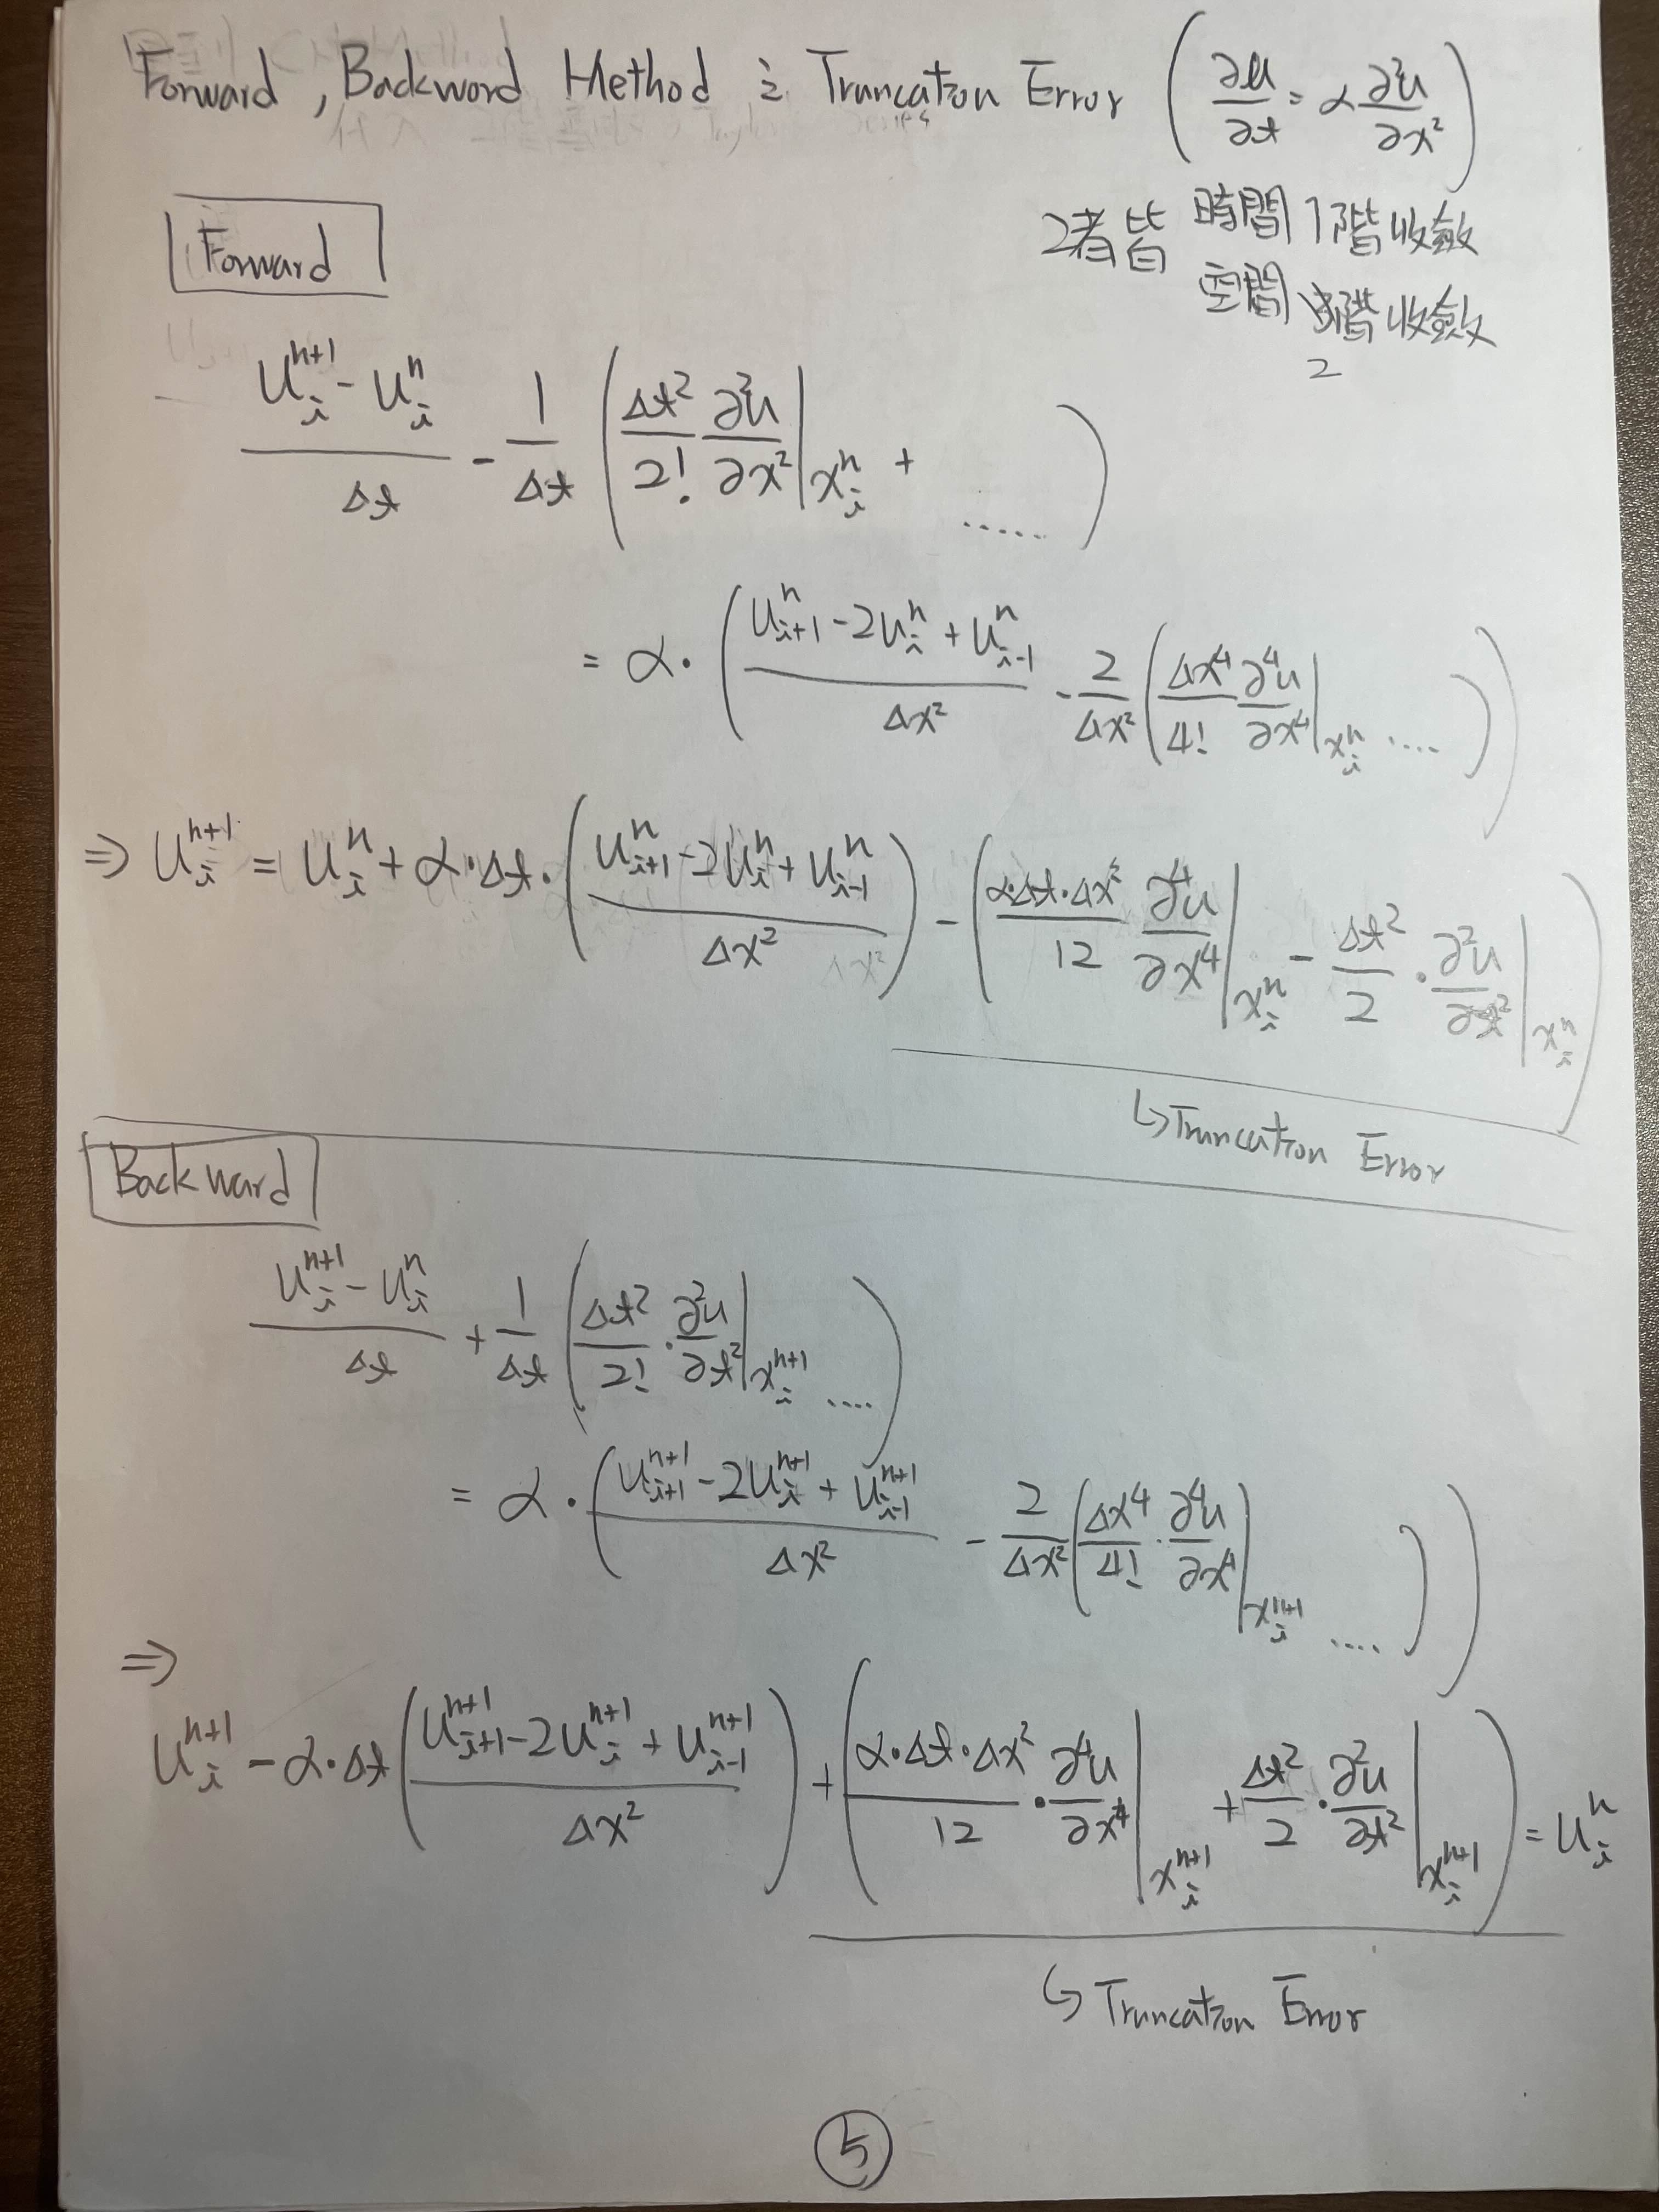 Forward, Backword Method 之 Truncation Error (∂u/∂t = α ∂²u/∂x²)
2者皆 時間1階收斂
空間 階收斂
2
Forward
(u_i^{n+1} - u_i^n)/Δt - 1/Δt (Δt²/2! ∂²u/∂x²|_{x_i^n} + .....)
= α·((u_{i+1}^n - 2u_i^n + u_{i-1}^n)/Δx² - 2/Δx² (Δx⁴/4! ∂⁴u/∂x⁴|_{x_i^n} ....))
⇒ u_i^{n+1} = u_i^n + α·Δt·((u_{i+1}^n - 2u_i^n + u_{i-1}^n)/Δx²) - (α·Δt·Δx²/12 ∂⁴u/∂x⁴|_{x_i^n} - Δt²/2 · ∂²u/∂t²|_{x_i^n})
↳ Truncation Error
Backward
(u_i^{n+1} - u_i^n)/Δt + 1/Δt (Δt²/2! · ∂²u/∂t²|_{x_i^{n+1}} ....)
= α·((u_{i+1}^{n+1} - 2u_i^{n+1} + u_{i-1}^{n+1})/Δx² - 2/Δx² (Δx⁴/4! · ∂⁴u/∂x⁴|_{x_i^{n+1}} ....))
⇒
u_i^{n+1} - α·Δt((u_{i+1}^{n+1} - 2u_i^{n+1} + u_{i-1}^{n+1})/Δx²) + (α·Δt·Δx²/12 · ∂⁴u/∂x⁴|_{x_i^{n+1}} + Δt²/2 · ∂²u/∂t²|_{x_i^{n+1}}) = u_i^n
↳ Truncation Error
5